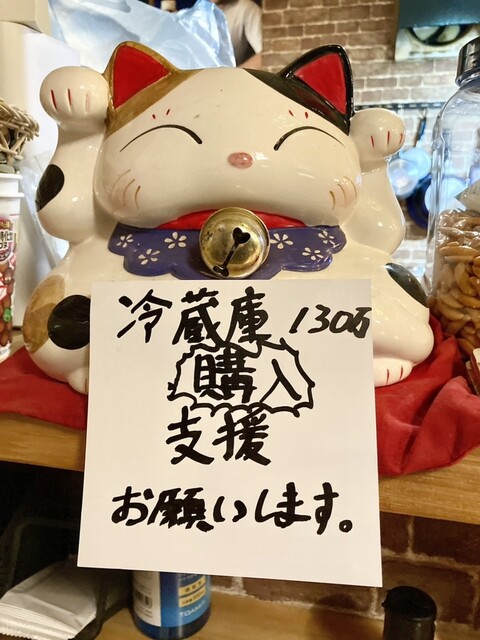 冷蔵庫 130万
購入
支援
お願いします。